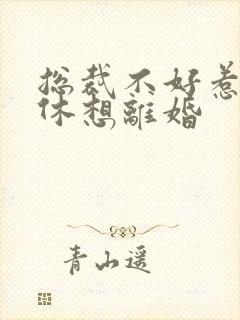 总裁不好惹
休想離婚
青山遥